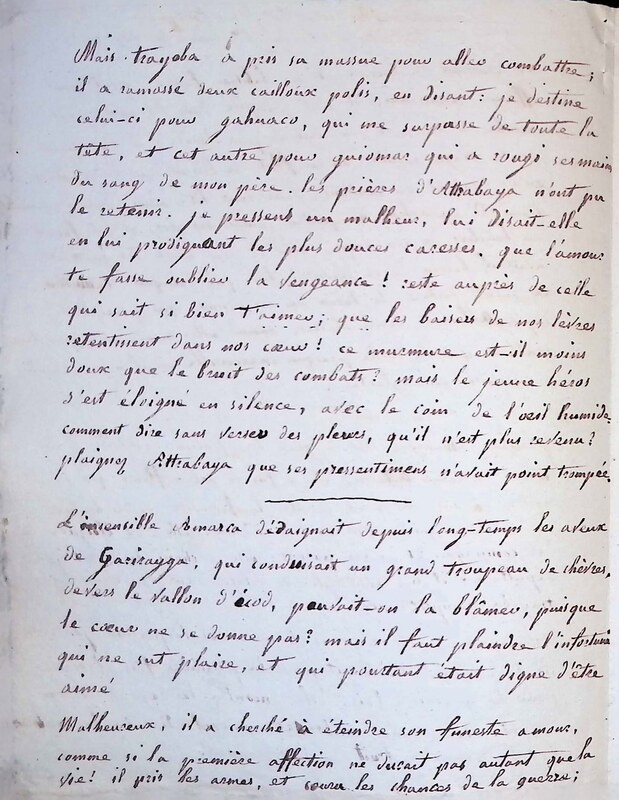 Mais trayoba a pris sa massue pour aller combattre;
il a ramassé deux cailloux polis, en disant: je destine
celui-ci pour gahuaco, qui me surpasse de toute la
tête, et cet autre pour guiomar qui a rougi ses main
du sang de mon père. les prières d'Attabaya n'ont pu
le retenir. je pressens un malheur, lui disait-elle
en lui prodiguant les plus douces caresses. que l'amour
te fasse oublier la vengeance! reste auprès de celle
qui sait si bien t'aimer; que les baisers de nos lèvres
retentissent dans nos cœur! ce murmure est-il moins
doux que le bruit des combats? mais le jeune héros
s'est éloigné en silence, avec le coin de l'œil humide.
comment dire sans verser des pleurs, qu'il n'est plus revenu?
plaignez Attabaya que ses pressentimens n'avait point trompée.
L'insensible Amarca dédaignait depuis long-temps les aveux
de Garirayga, qui conduisait un grand troupeau de chèvres,
devers le vallon d'écod, pouvait-on la blâmer, puisque
le cœur ne se donne pas? mais il faut plaindre l'infortuné
qui ne sut plaire, et qui pourtant était digne d'être
aimé
Malheureux, il a cherché à éteindre son funeste amour,
comme si la première affection ne durait pas autant que la
vie! il pris les armes, et couru les chances de la guerre;